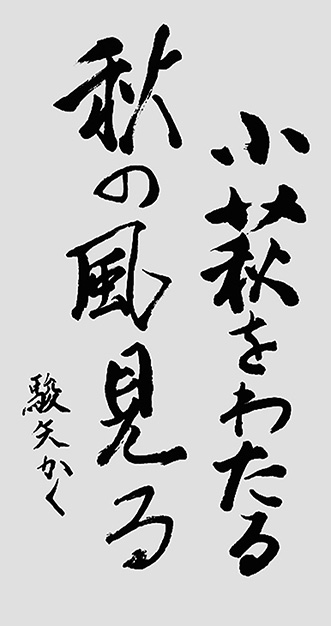 小萩をわたる
秋の風見る
駿矢かく